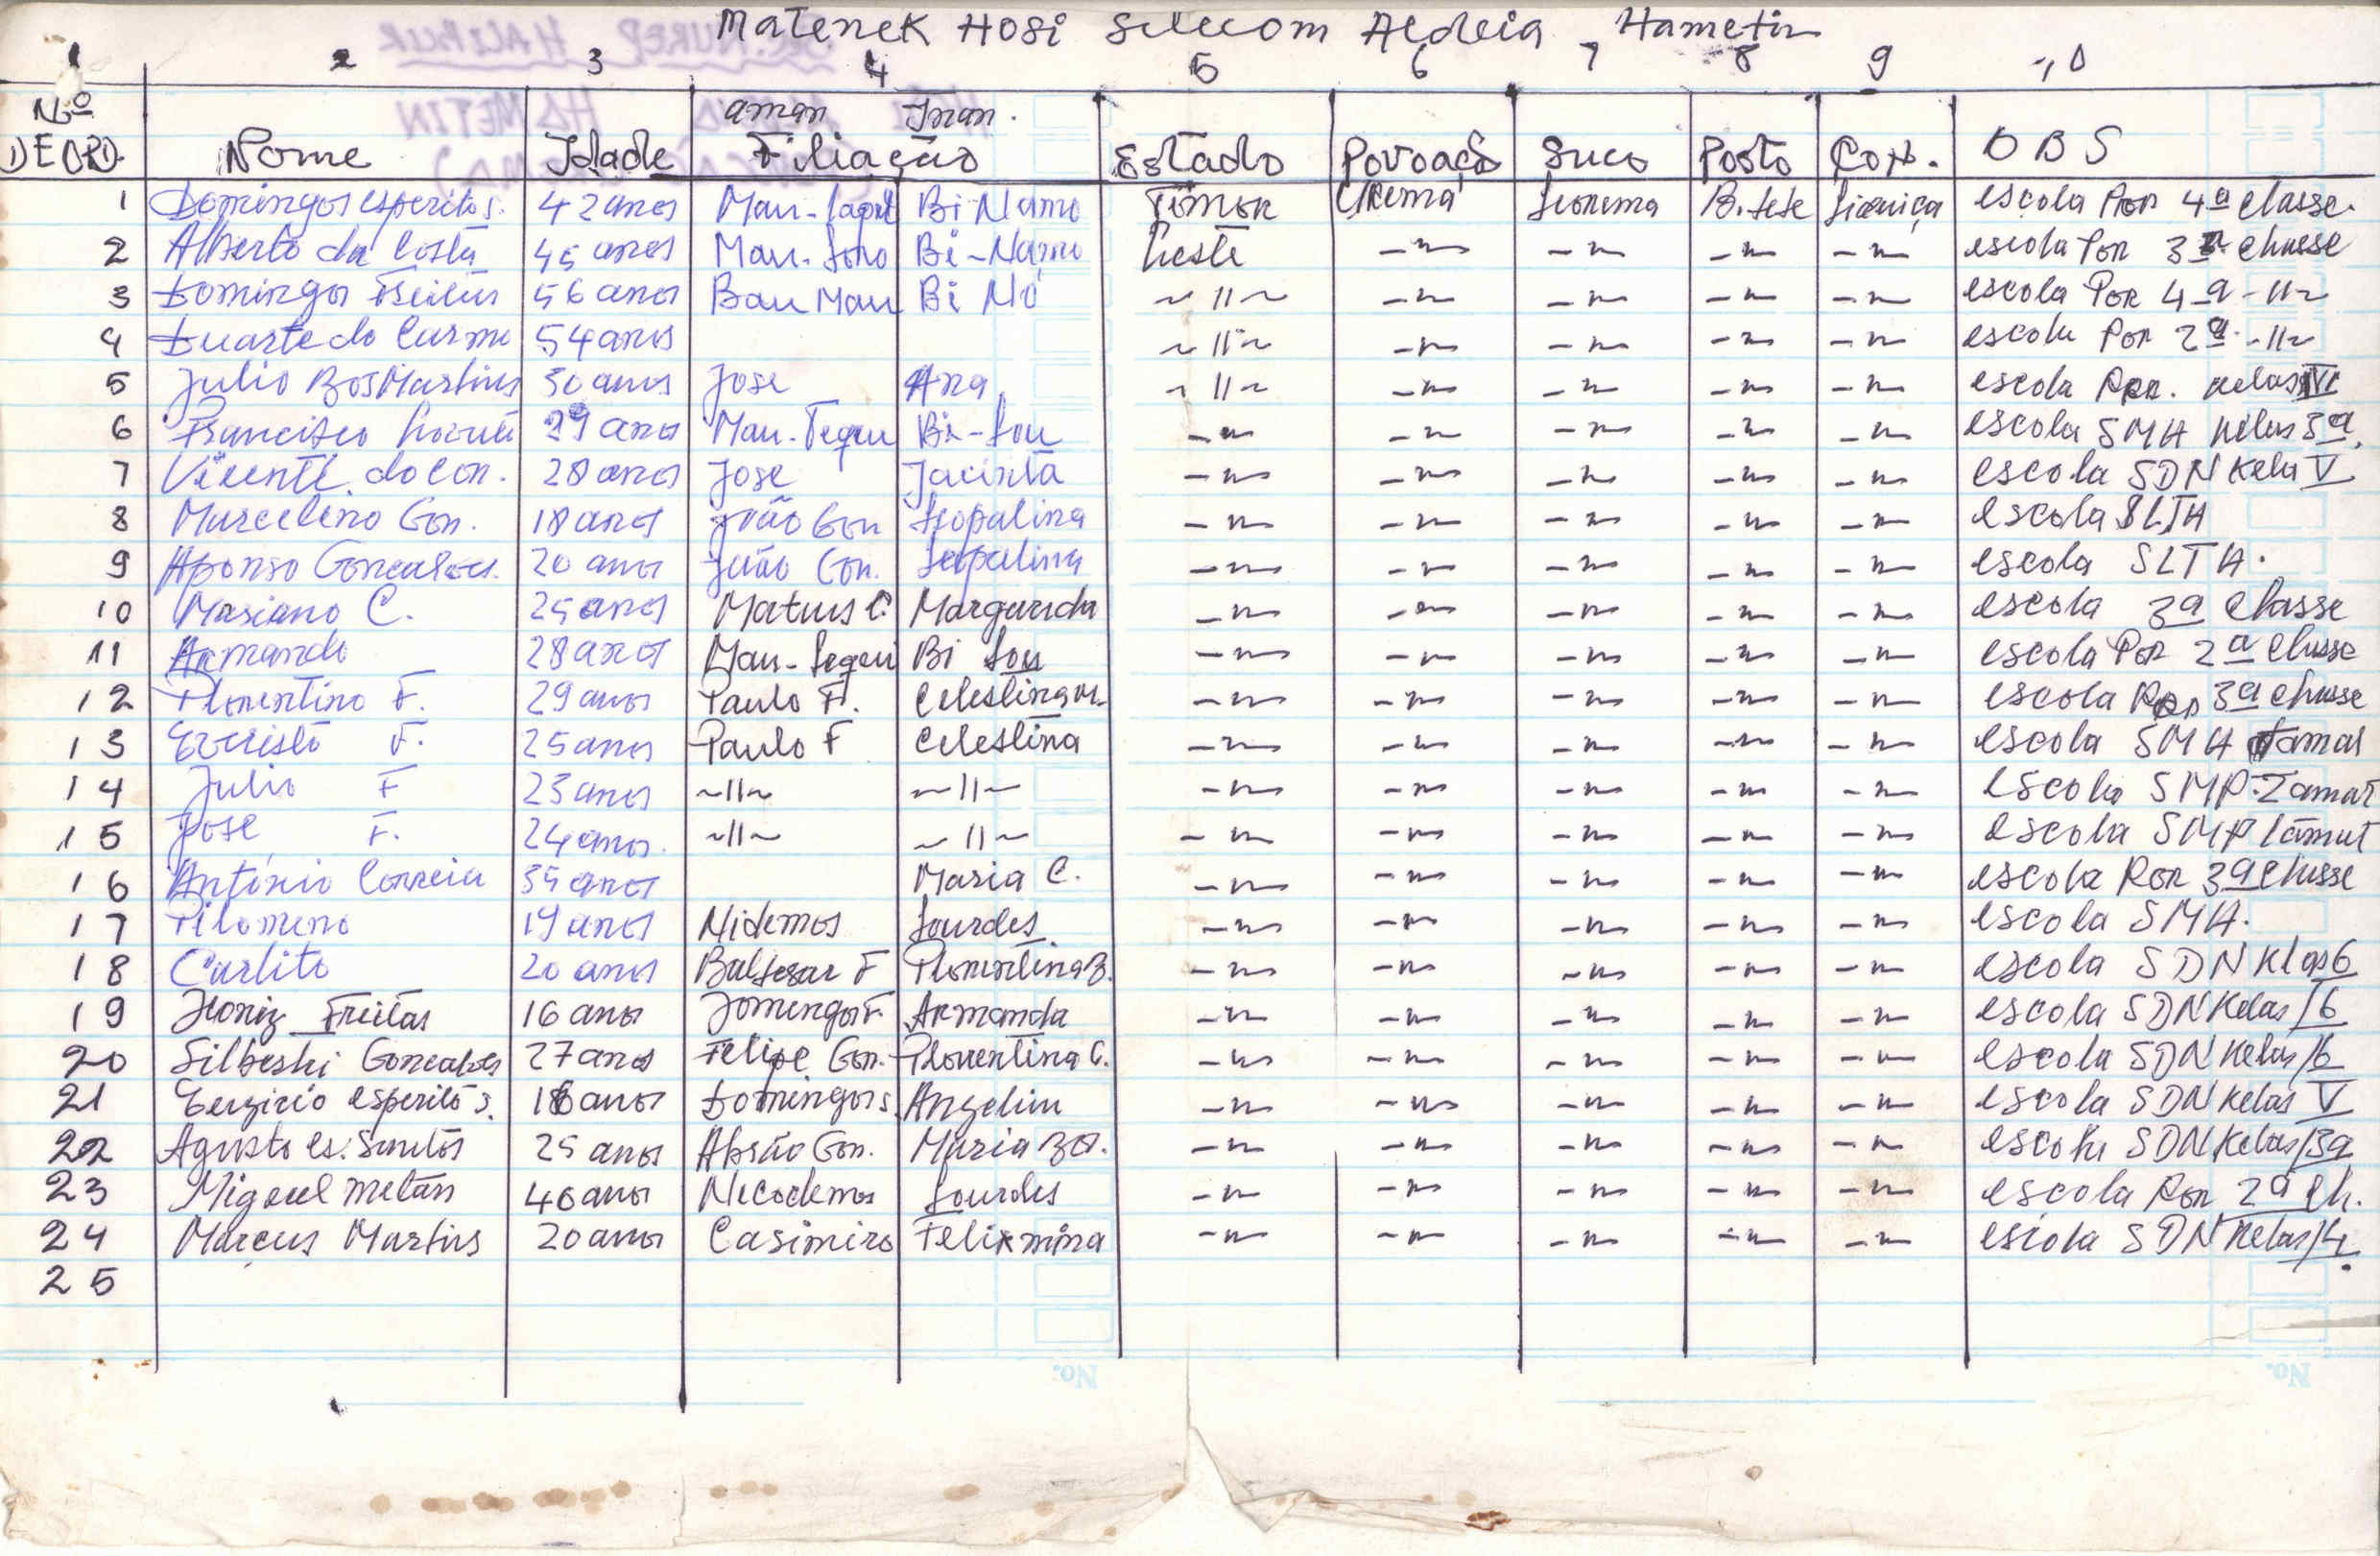 Matenek Hosi Selecom Aldeia, Hametin
1 2 3 4 5 6 7 8 9 10
Nº DE ORD. Nome Idade aman Inan. Filiação Estado Povoação Suco Posto Con. OBS
1 Domingos esperito s. 42 anos Mau- Bi Namo Timor Urema Leorema B. Tete Liquiça escola Por 4ª classe.
2 Alberto da Costa 45 anos Mau- Bi-Namo Leste -"- -"- -"- -"- escola Por 3ª classe
3 Domingos Freitas 56 anos Bau Mau Bi No ~"~ -"- -"- -"- -"- escola Por 4ª -"~
4 Duarte do Carmo 54 anos ~"~ -"- -"- -"- -"- escola Por 2ª -"~
5 Julio Martins 30 anos Jose Ana ~"~ -"- -"- -"- -"- escola Por. kelas
6 Francisco 29 anos Mau- Bi-Lou -"- -"- -"- -"- -"- escola SMA kelas 3ª.
7 Vicente do Con. 28 anos Jose Jacinta -"- -"- -"- -"- -"- escola SDN Kela V
8 Marcelino Gon. 18 anos João Gon Leopalina -"- -"- -"- -"- -"- escola SLTA
9 Afonso Goncalves. 20 anos João Gon. Leopalina -"- -"- -"- -"- -"- escola SLTA.
10 Masiano C. 25 anos Matius C. Margarida -"- -"- -"- -"- -"- escola 3ª classe
11 Armando 28 anos Mau- Bi Lou -"- -"- -"- -"- -"- escola Por 2ª classe
12 Florentino F. 29 anos Paulo F. Celestina -"- -"- -"- -"- -"- escola Por 3ª classe
13 Evristo F. 25 anos Paulo F Celestina -"- -"- -"- -"- -"- escola SMA tamat
14 Julio F 23 anos ~"~ ~"~ -"- -"- -"- -"- -"- escola SMP. Tamat
15 Jose F. 24 anos. ~"~ ~"~ -"- -"- -"- -"- -"- escola SMP tamat
16 António Correia 35 anos Maria C. -"- -"- -"- -"- -"- escola Por 3ª classe
17 Filomeno 19 anos Nidemos Lourdes -"- -"- -"- -"- -"- escola SMA.
18 Carlito 20 anos Baltesar F Florentina B. -"- -"- -"- -"- -"- escola SDN Klas 6
19 Freitas 16 anos Domingos F. Armanda -"- -"- -"- -"- -"- escola SDN Kelas/6
20 Silbeshi Goncalves 27 anos Felipe Gon. Florentina C. -"- -"- -"- -"- -"- escola SDN Kelas/6
21 esperito s. 18 anos Domingos s. Angelina -"- -"- -"- -"- -"- escola SDN Kelas V
22 Agusto es. Santos 25 anos Abrão Gon. Maria -"- -"- -"- -"- -"- escola SDN Kelas/3ª
23 Miguel metan 40 anos Necodemos Lourdes -"- -"- -"- -"- -"- escola Por 2ª cl.
24 Marcus Martins 20 anos Casimiro Felixmina -"- -"- -"- -"- -"- escola SDN Kelas/4.
25
No.
No.